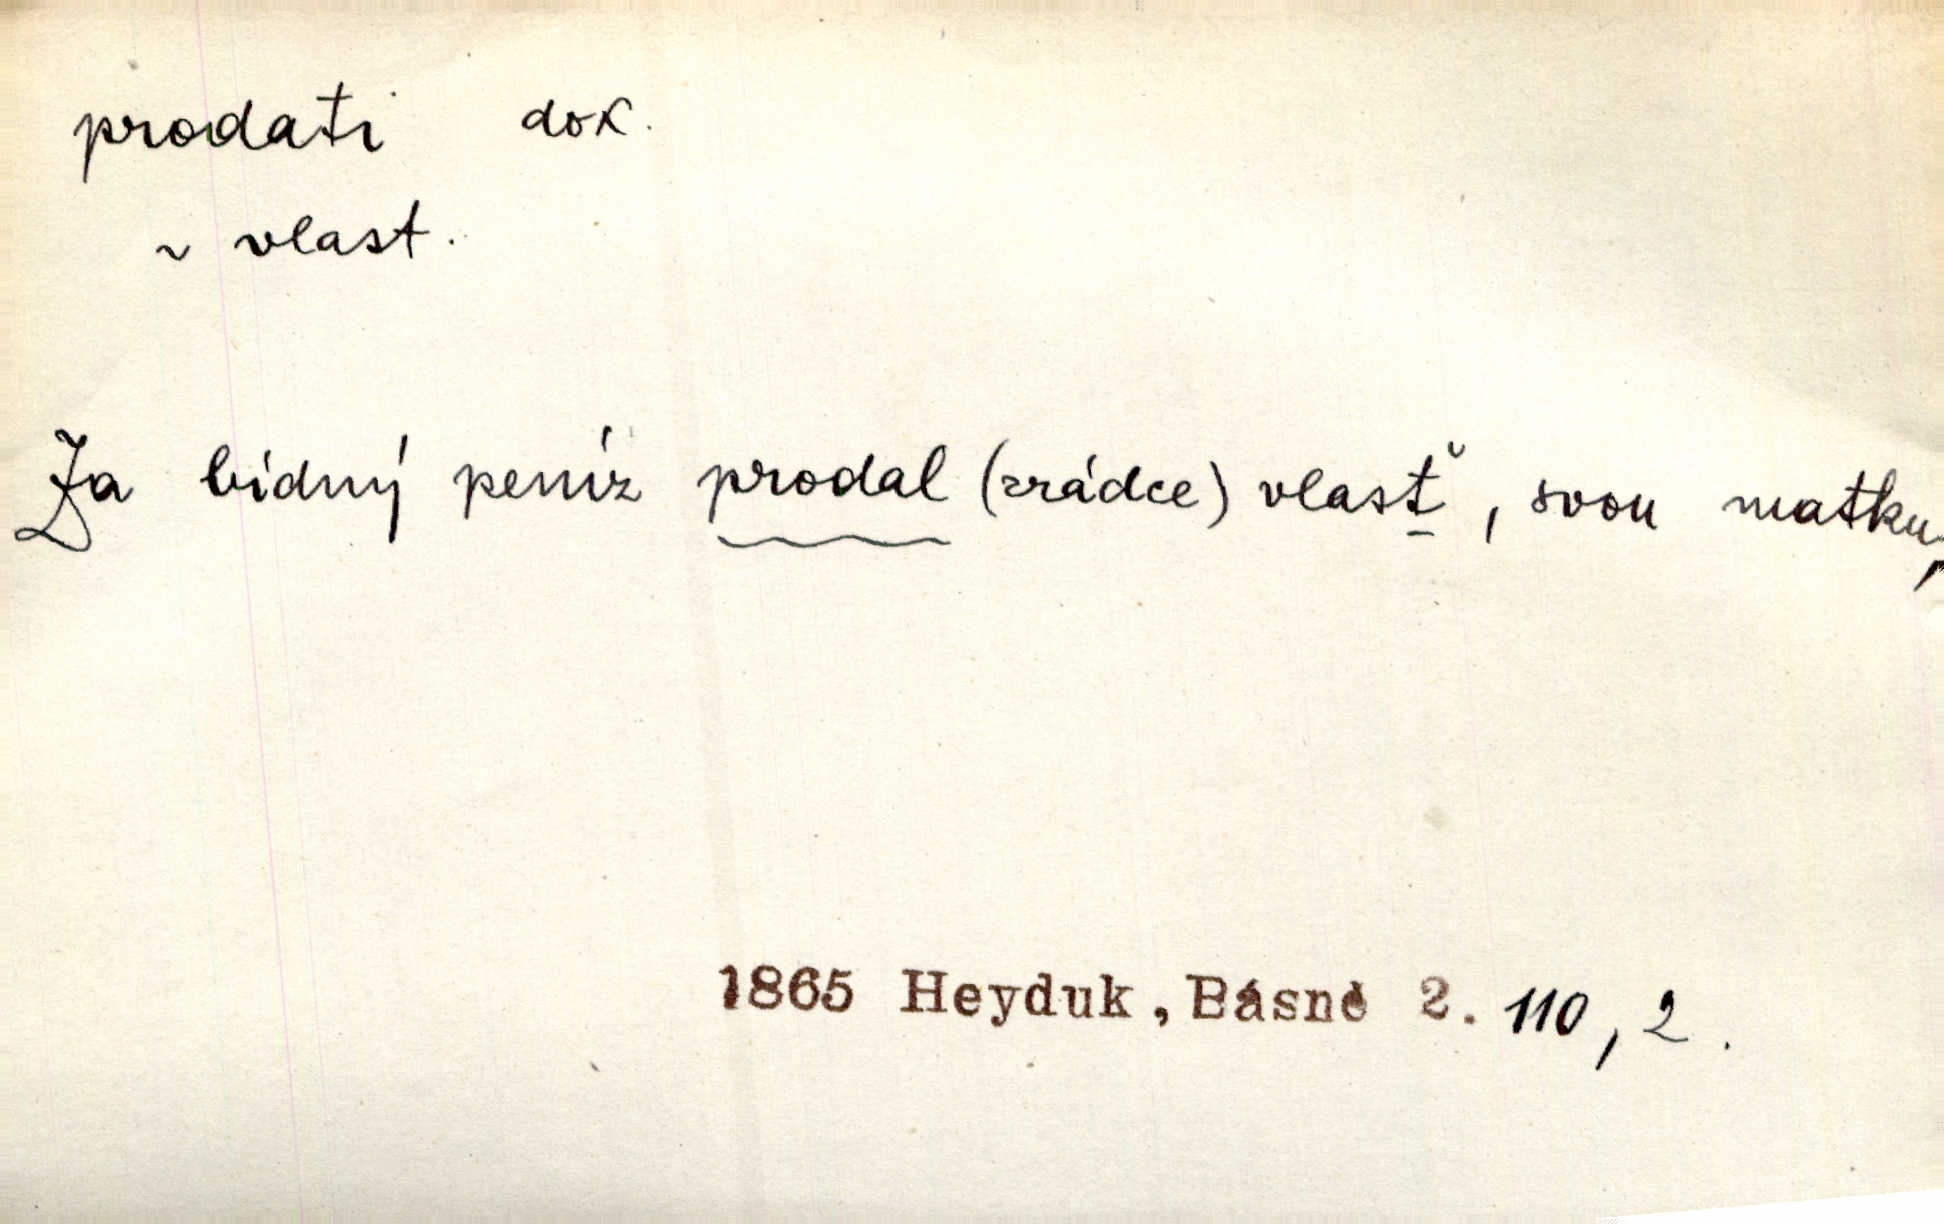 prodati dok.
~ vlast.
Za bídný peníz prodal (zrádce) vlasť, svou matku,
1865 Heyduk, Básně 2. 110, 2.